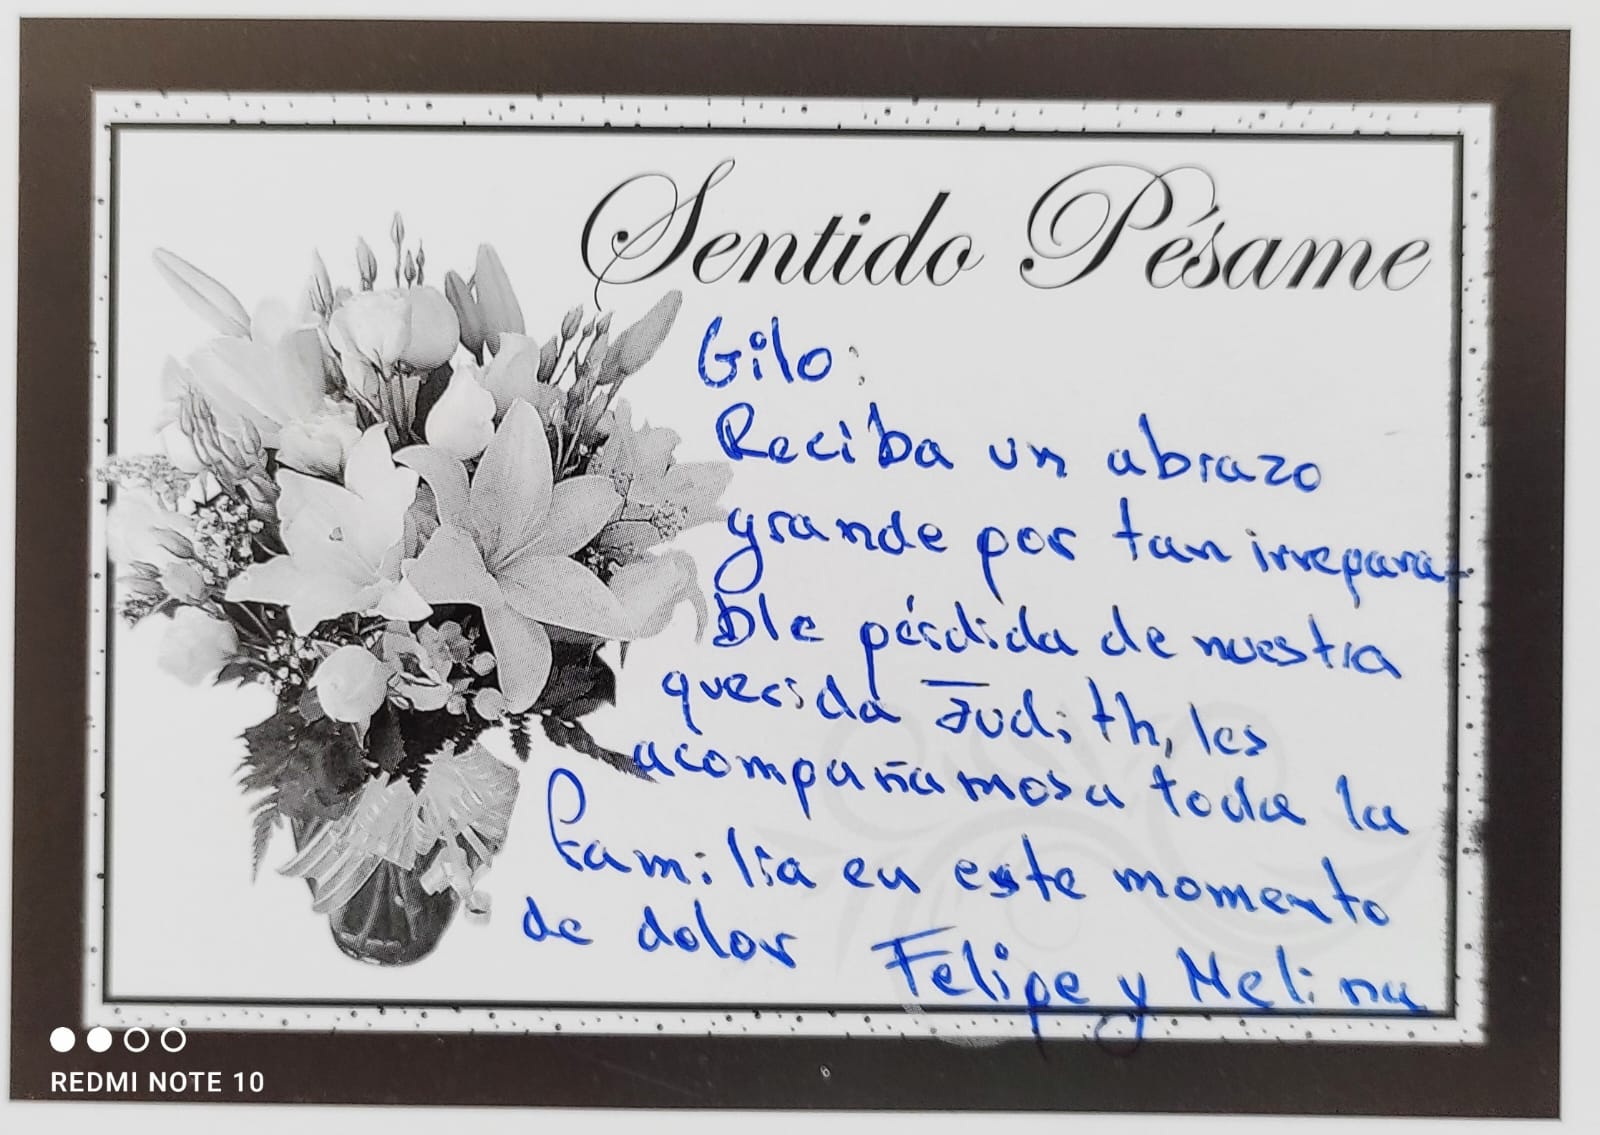 Sentido Pésame
Gilo:
Reciba un abrazo
grande por tan irrepara-
ble pérdida de nuestra
querida Judith, les
acompañamos a toda la
familia en este momento
de dolor Felipe y Melina
REDMI NOTE 10